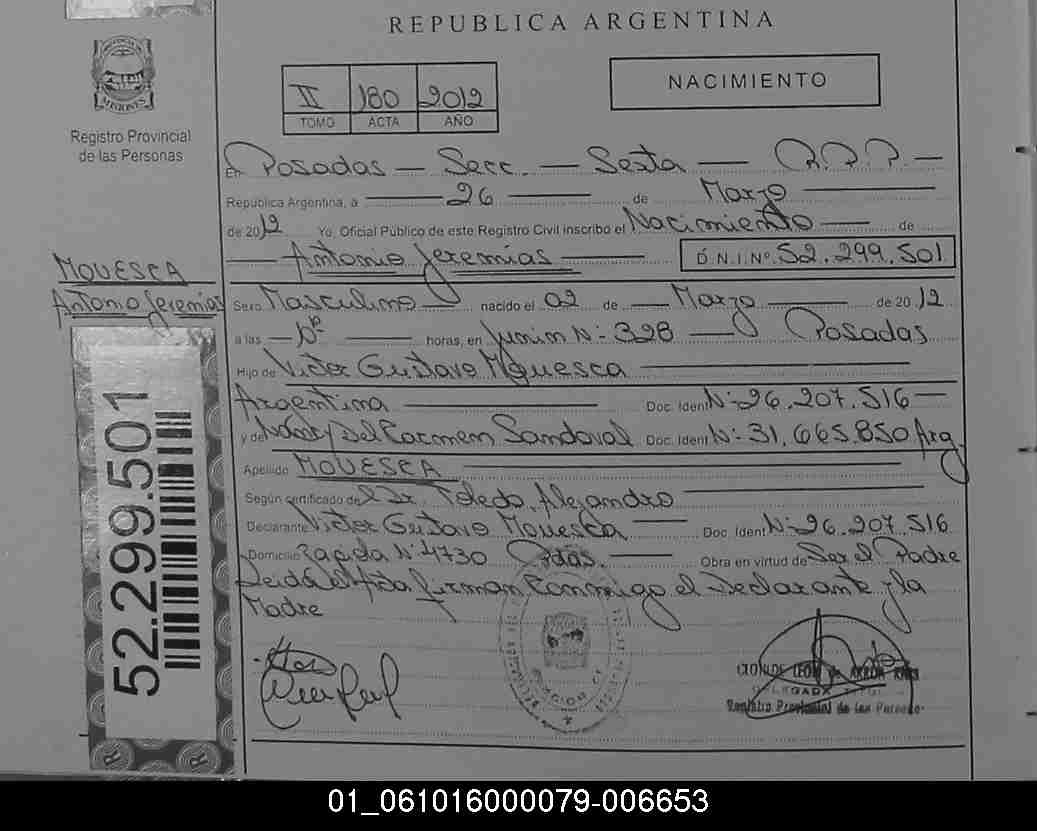 REPUBLICA ARGENTINA
NACIMIENTO
II 180 2012
TOMO ACTA AÑO
MISIONES
Registro Provincial
de las Personas
En Posadas — Secc. — Sexta — R.P.P. —
Republica Argentina, a — 26 — de Marzo —
de 2012 Yo, Oficial Público de este Registro Civil inscribo el Nacimiento — de
— Antonio Jeremías — D.N.I.Nº 52.299.501
MOUESCA
Antonio Jeremías
Sexo Masculino nacido el 02 de — Marzo — de 2012
a las — horas, en Junin Nº 328 — Posadas
Hijo de Victor Gustavo Mouesca —
Argentina — Doc. Ident Nº 26.207.516 —
y de Nancy Del Carmen Sandoval Doc. Ident Nº 31.665.850 Arg.
Apellido MOUESCA —
Según certificado de Dr. Toledo, Alejandro —
Declarante Victor Gustavo Mouesca — Doc. Ident Nº 26.207.516
Domicilio Nº 4730 Pdas. — Obra en virtud de Ser el Padre
Leida el Acta firman Conmigo el Declarante y la
Madre
DELEGADA
Registro Provincial de las Personas
52.299.501
01_061016000079-006653